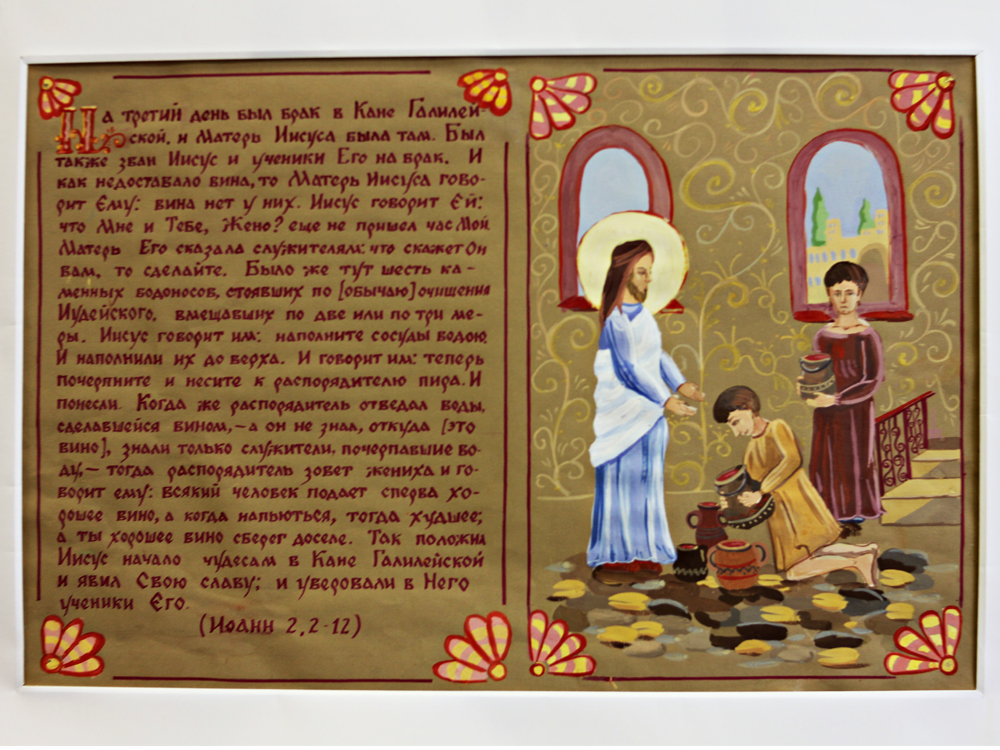 На третий день был брак в Кане Галилей-
ской, и Матерь Иисуса была там. Был
также зван Иисус и ученики Его на брак. И
как недоставало вина, то Матерь Иисуса гово-
рит Ему: вина нет у них. Иисус говорит Ей:
что Мне и Тебе, Жено? еще не пришел час Мой
Матерь Его сказала служителям: что скажет Он
вам, то сделайте. Было же тут шесть ка-
менных водоносов, стоявших по [обычаю] очищения
Иудейского, вмещавших по две или по три ме-
ры. Иисус говорит им: наполните сосуды водою.
И наполнили их до верха. И говорит им: теперь
почерпните и несите к распорядителю пира. И
понесли. Когда же распорядитель отведал воды,
сделавшейся вином, – а он не знал, откуда [это
вино], знали только служители, почерпавшие во-
ду, – тогда распорядитель зовет жениха и го-
ворит ему: всякий человек подает сперва хо-
рошее вино, а когда напьються, тогда худшее;
а ты хорошее вино сберег доселе. Так положил
Иисус начало чудесам в Кане Галилейской
и явил Свою славу; и уверовали в Него
ученики Его.
(Иоанн 2, 2-12)